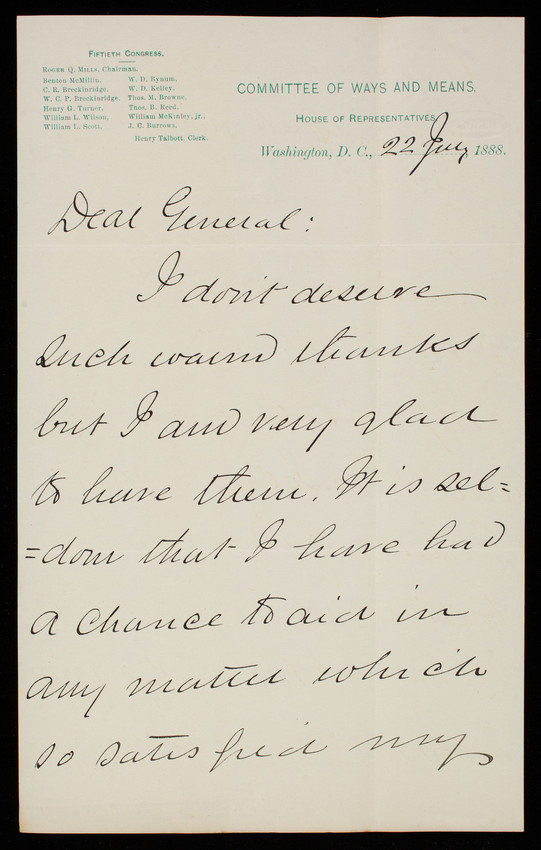 FIFTIETH CONGRESS.
ROGER Q. MILLS, Chairman.
Benton McMillin.
C. R. Breckinridge.
W. C. P. Breckinridge.
Henry G. Turner.
William L. Wilson.
William L. Scott.
W. D. Bynum.
W. D. Kelley.
Thos. M. Browne.
Thos. B. Reed.
William McKinley, jr.,
J. C. Burrows.
Henry Talbott, Clerk.
COMMITTEE OF WAYS AND MEANS,
HOUSE OF REPRESENTATIVES,
Washington, D. C., 22 1888.
Dear General:
I don't deserve
such warm thanks
but I am very glad
to have them. It is sel=
=dom that I have had
a chance to aid in
any matter which
so satisfied my